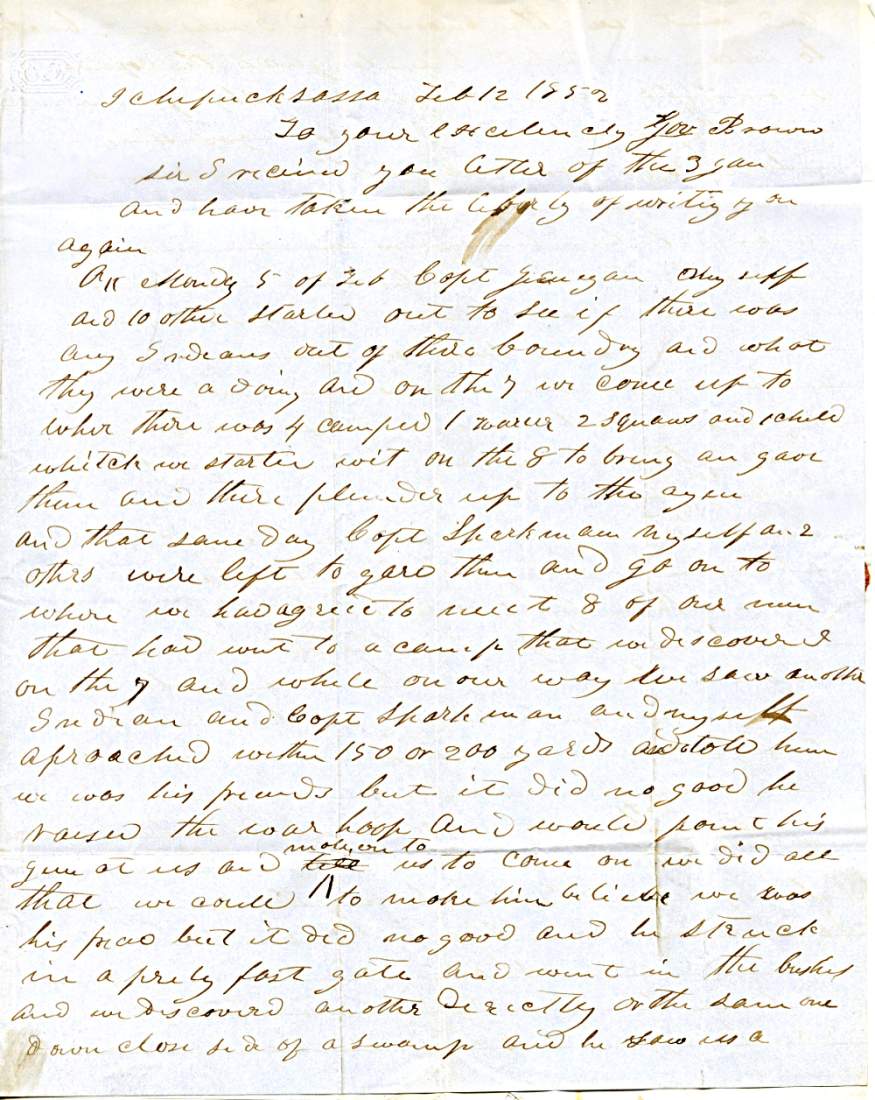 Ichepucksassa Feb 12 1852
To your Excelencly Gov Brown
sir I recived you letter of the 3 Jan
and have taken the liberty of writig you
again
On Mondy 5 of Feb Capt my self
and 10 other started out to see if there was
any Indians out of there boundry and what
they were a doing and on the 7 we come up to
wher there was 4 camped 1 warier 2 squaws and 1 child
whitch we started wit on the 8 to bring an gave
them and there plunder up to the agen
and that same day Capt Sparkman myself an 2
others were left to gard them and go on to
where we had agreed to meet 8 of our men
that had went to a camp that we discovered
on the 7 and while on our way we saw another
Indian and Capt Sparkman and myself
aproached within 150 or 200 yards and told him
we was his freinds but it did no good he
raised the war hoop and would point his
gun at us and motion to us to come on we did all
that we could to make him believe we was
his frend but it did no good and he struck
in a prety fast gate and went in the bushes
and we discoverd another derectly or the same one
down close side of a swamp and he saw us a